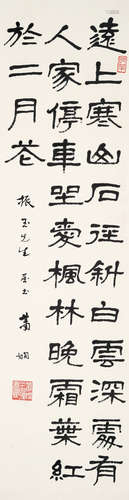 遠上寒山石徑斜白雲深處有
人家停車坐愛楓林晚霜葉紅
於二月花
振玉先生 蕭嫻